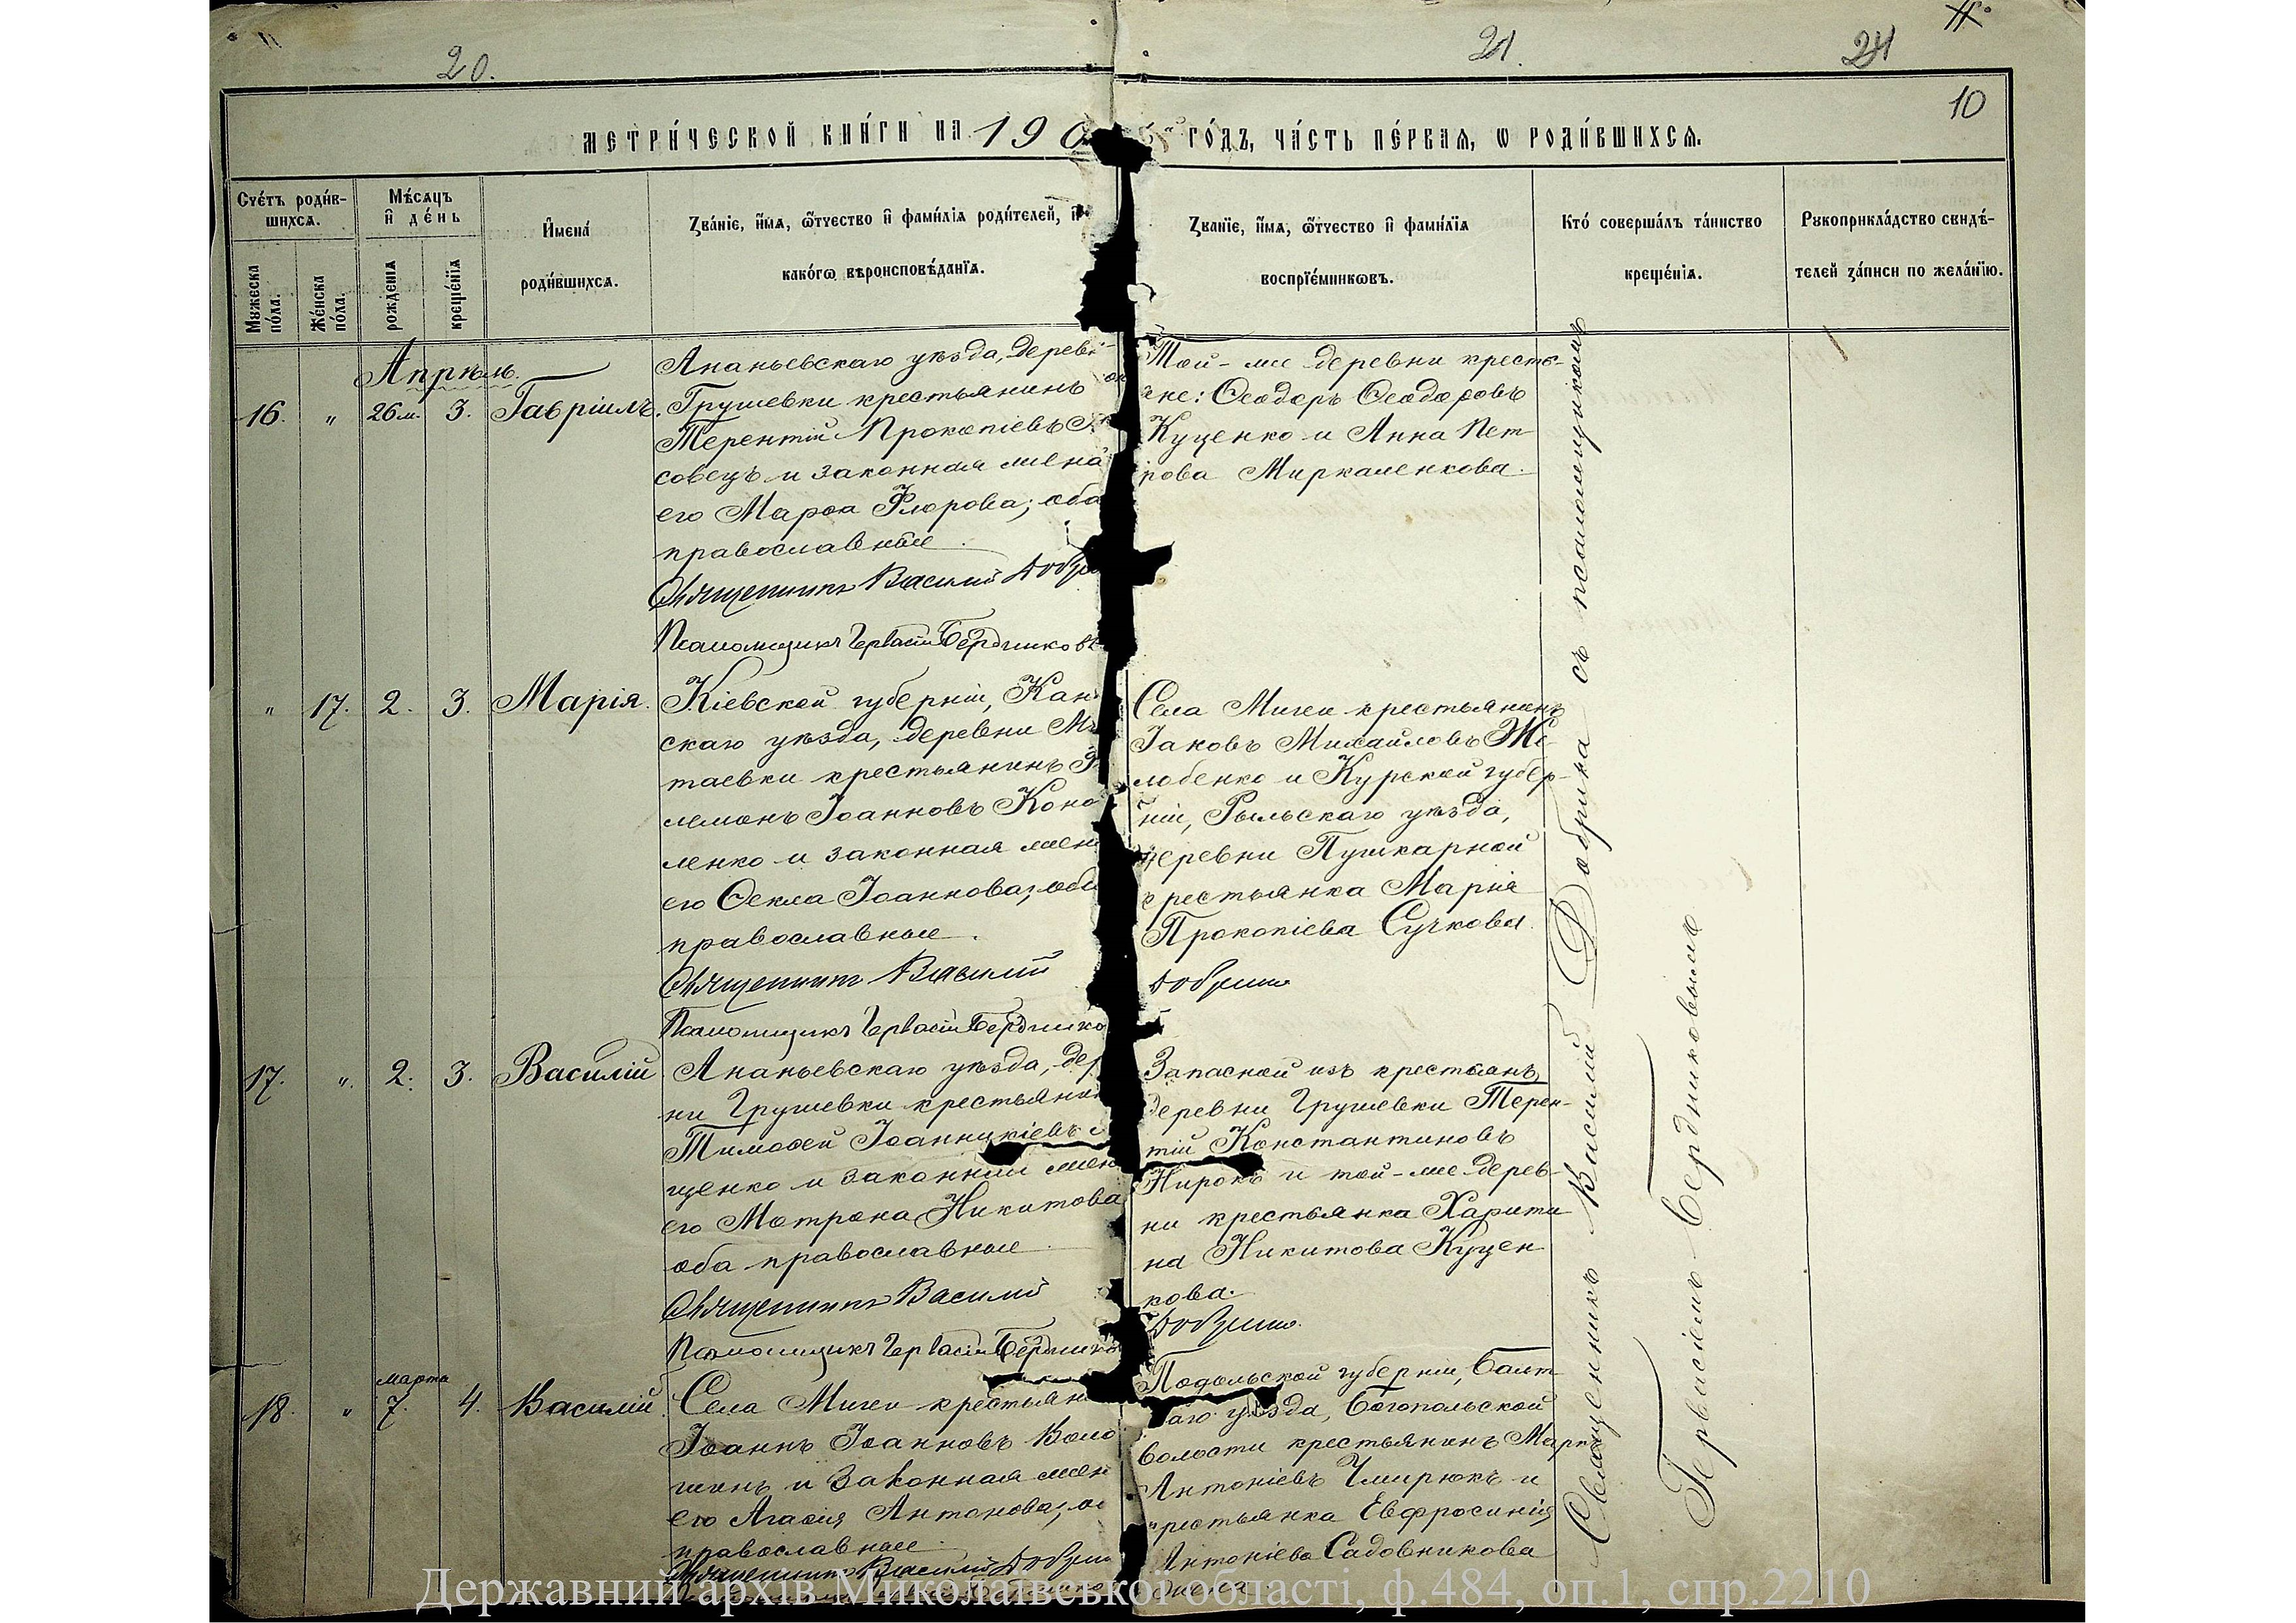 20.
21.
24
10
МЕТРИ́ЧЕСКОЙ КНИ́ГИ НА 190
ГО́ДЪ, ЧА́СТЬ ПЕ́РВАѦ, Ѡ РОДИ́ВШИХСѦ.
Сче́тъ роди́в-
шихсѧ.
Му́жеска по́ла.
Же́нска по́ла.
Мѣ́сѧцъ
и҆ де́нь
рожденїѧ
креще́нїѧ
И҆мена́
роди́вшихсѧ.
Зва́нїе, и҆́мѧ, ѻ҆́тчество и҆ фами́лїѧ роди́телей, и҆
како́гѡ вѣроисповѣ́данїѧ.
Зва́нїе, и҆́мѧ, ѻ҆́тчество и҆ фами́лїѧ
воспрїе́мникѡвъ.
Кто́ соверша́лъ та́инство
креще́нїѧ.
Рꙋкоприкла́дство свидѣ́-
телей за́писи по жела́нїю.
Апрѣль.
16. " 26 м. 3. Гавріилъ.
Ананьевскаго уѣзда, дерев
Грушевки крестьянинъ
Терентій Прокопіевъ
совецъ и законная жена
его Марѳа Флорова; оба
православные.
Священникъ Василій Добри
Псаломщикъ Гервасій Бердниковъ
Той-же деревни кресть-
яне: Ѳеодоръ Ѳеодоровъ
Куценко и Анна Пет
рова Миркаленкова.
" 17. 2. 3. Марія.
Кіевской губерніи, Кан
скаго уѣзда, деревни
таевки крестьянинъ
лимонъ Іоанновъ Коно
ленко и законная жен
его Ѳекла Іоаннова; оба
православные.
Священникъ Василій
Псаломщикъ Гервасій Бердинко
Села Мигеи крестьянинъ
Іаковъ Михайловъ Же-
лобенко и Курской губер-
ніи, Рыльскаго уѣзда,
деревни Пушкарной
крестьянка Марія
Прокопіева Сучкова.
Добрина
17. ". 2. 3. Василій
Ананьевскаго уѣзда, дер
ни Грушевки крестьянин
Тимоѳей Іоанникіевъ
щенко и законная жен
его Матрона Никитова
оба православные.
Священникъ Василій
Псаломщикъ Гервасій Бердинко
Запасной изъ крестьянъ
деревни Грушевки Терен-
тій Константиновъ
Нирокъ и той-же дерев-
ни крестьянка Харити
на Никитова Куцен
кова.
Добрина.
марта
18. " 7. 4. Василій.
Села Мигеи крестьян
Іоаннъ Іоанновъ Коло
шинъ и законная жен
его Агаѳія Антонова;
православные.
Священникъ Василій Добрин
Подольской губерніи, Балт
скаго уѣзда, Богопольской
волости крестьянинъ Марк
Антоніевъ Чмирюкъ и
крестьянка Евфросинія
Антоніева Садовникова
Священникъ Василій Добрина съ псаломщикомъ
Гервасіемъ Бердниковымъ
Державний архів Миколаївської області, ф.484, оп.1, спр.2210